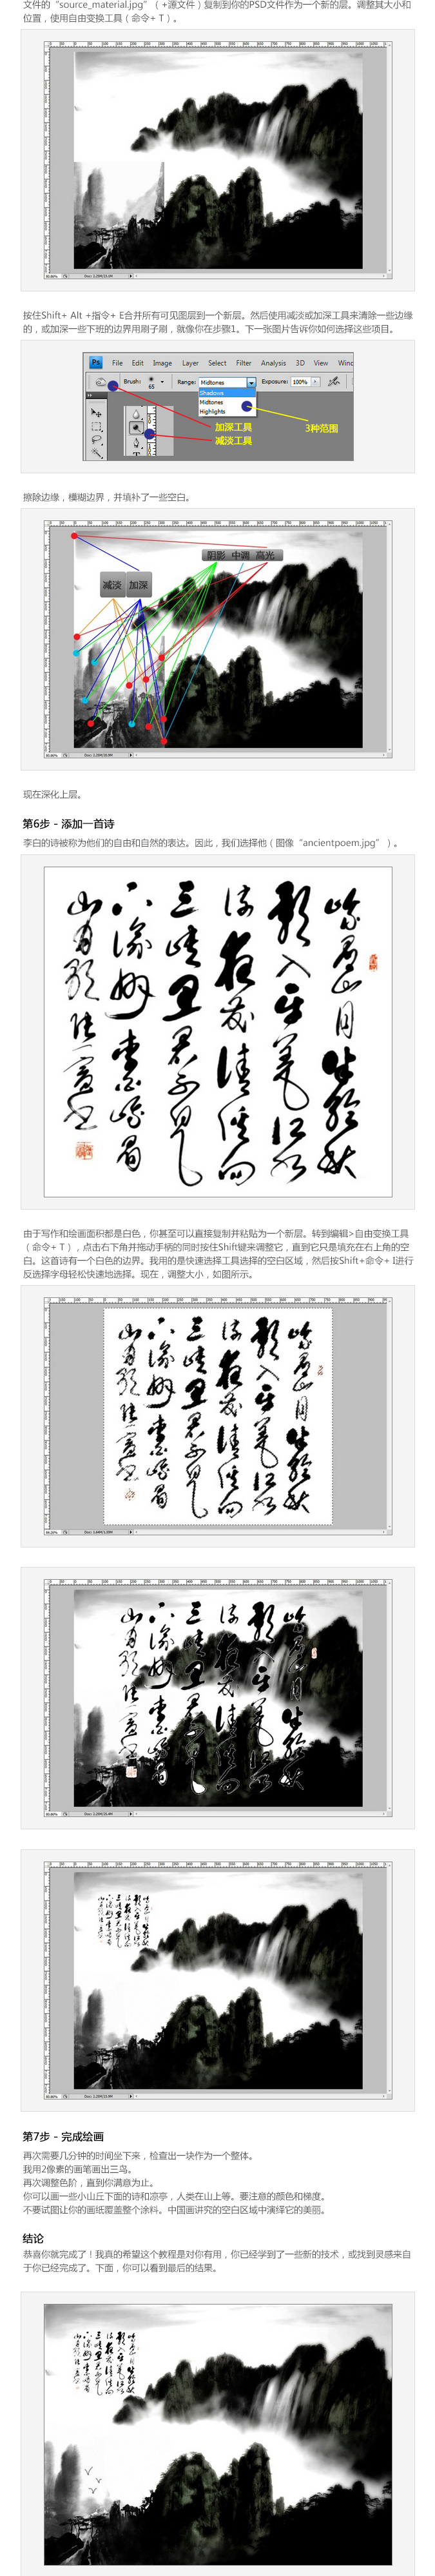 文件的“source_material.jpg”（+源文件）复制到你的PSD文件作为一个新的层。调整其大小和
位置，使用自由变换工具（命令+ T）。
按住Shift+ Alt +指令+ E合并所有可见图层到一个新层。然后使用减淡或加深工具来清除一些边缘
的，或加深一些下班的边界用刷子刷，就像你在步骤1。下一张图片告诉你如何选择这些项目。
Ps File Edit Image Layer Select Filter Analysis 3D View Wind
Brush: 65 Range: Midtones Exposure: 100%
Shadows
Midtones
Highlights
加深工具
减淡工具
3种范围
擦除边缘，模糊边界，并填补了一些空白。
阴影 中调 高光
减淡 加深
现在深化上层。
第6步 - 添加一首诗
李白的诗被称为他们的自由和自然的表达。因此，我们选择他（图像“ancientpoem.jpg”）。
峨眉山月半轮秋
影入平羌江水
流夜发清溪向
三峡思君不见
下渝州 李白峨眉
山月歌 张宣
由于写作和绘画面积都是白色，你甚至可以直接复制并粘贴为一个新层。转到编辑>自由变换工具
（命令+ T），点击右下角并拖动手柄的同时按住Shift键来调整它，直到它只是填充在右上角的空
白。这首诗有一个白色的边界。我用的是快速选择工具选择的空白区域，然后按Shift+命令+ I进行
反选择字母轻松快速地选择。现在，调整大小，如图所示。
第7步 - 完成绘画
再次需要几分钟的时间坐下来，检查出一块作为一个整体。
我用2像素的画笔画出三鸟。
再次调整色阶，直到你满意为止。
你可以画一些小山丘下面的诗和凉亭，人类在山上等。要注意的颜色和梯度。
不要试图让你的画纸覆盖整个涂料。中国画讲究的空白区域中演绎它的美丽。
结论
恭喜你就完成了！我真的希望这个教程是对你有用，你已经学到了一些新的技术，或找到灵感来自
于你已经完成了。下面，你可以看到最后的结果。